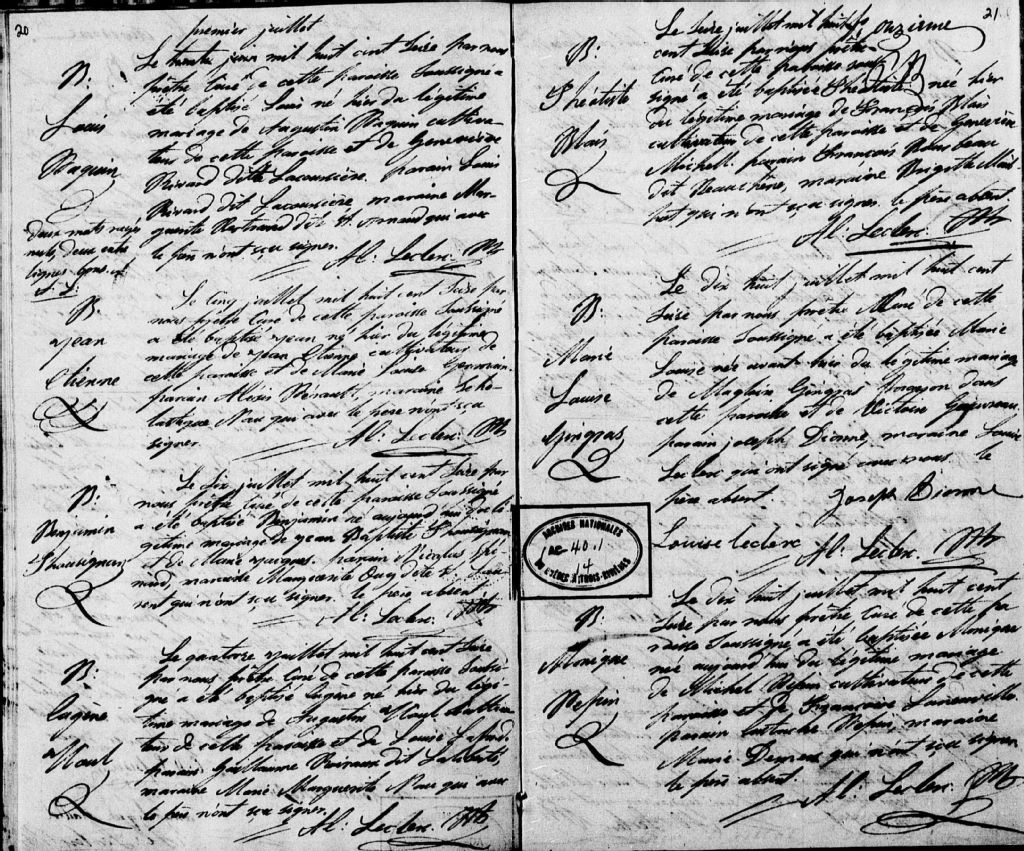 20
premier juillet
Le trente juin mil huit cent seize par nous
prêtre curé de cette paroisse soussigné a
été baptisé Louis né hier du légitime
mariage de Augustin Paquin cultiva
teur de cette paroisse et de Geneviève
Rivard dite Lacoursière. parain Louis
Rivard dit Lacoursière, maraine Mar-
guerite Bertrand dite St Arnaud qui avec
le père n'ont sçu signer.
Al: Leclerc. Ptre
B:
Louis
Paquin
deux mots rayés
nuls, deux entre
lignes bons.
Le cinq juillet mil huit cent seize par
nous prêtre curé de cette paroisse soussigné
a été baptisé Jean né hier du légitime
mariage de Jean Etienne cultivateur de
cette paroisse et de Marie Louise Germain.
parain Alexis maraine Scho-
lastique Nau qui avec le père n'ont sçu
signer.
Al: Leclerc. Ptre
B.
Jean
Etienne
Le dix juillet mil huit cent seize par
nous prêtre curé de cette paroisse soussigné
a été baptisé Benjamin né aujourd'hui du lé
gitime mariage de Jean Baptiste
et de Marie parain Nicolas
maraine Marguerite dite St
rent qui n'ont sçu signer. le père absent.
Al: Leclerc. Ptre
B:
Benjamin
Le quatorze juillet mil huit cent seize
par nous prêtre curé de cette paroisse soussi-
gné a été baptisé Eugène né hier du légi-
time mariage de Augustin cultiva
teur de cette paroisse et de Louise Lafond.
parain Guillaume dit Laliberté,
maraine Marie Marguerite Nau qui avec
le père n'ont sçu signer.
Al: Leclerc. Ptre
B:
Eugène
21.
Le seize juillet mil huit onzieme
cent seize par nous prêtre
curé de cette paroisse sous
signé a été baptisée née hier
du légitime mariage de François Blais
cultivateur de cette paroisse et de Geneviève
Michel. parain François
dit Beauchêne, maraine Brigitte
qui n'ont sçu signer. le père absent.
Al: Leclerc. Ptre
B:
Blais
Le dix huit juillet mil huit cent
seize par nous prêtre curé de cette
paroisse soussigné a été baptisée Marie
Louise née avant hier du légitime mariage
de Gingras forgeron dans
cette paroisse et de Victoire
parain Joseph Dionne, maraine Louise
Leclerc qui ont signé avec nous. le
père absent. Joseph Dionne
Louise leclerc Al: Leclerc. Ptre
B:
Marie
Louise
Gingras
ARCHIVES NATIONALES
AC-40.1
14
DU QUÉBEC À TROIS-RIVIÈRES
Le dix huit juillet mil huit cent
seize par nous prêtre curé de cette pa
roisse soussigné a été baptisée Monique
née aujourd'hui du légitime mariage
de Michel Pepin cultivateur de cette
paroisse et de Françoise
parain Eustache Pepin, maraine
Marie qui n'ont sçu signer
le père absent.
Al: Leclerc. Ptre
B:
Monique
Pepin